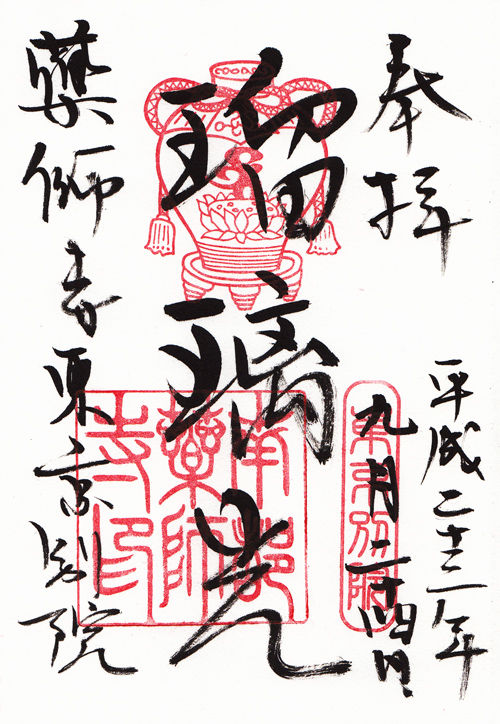 奉拝
平成二十二年
九月二十四日
東京別院
瑠璃光
南都
藥師
寺印
藥師寺東京別院